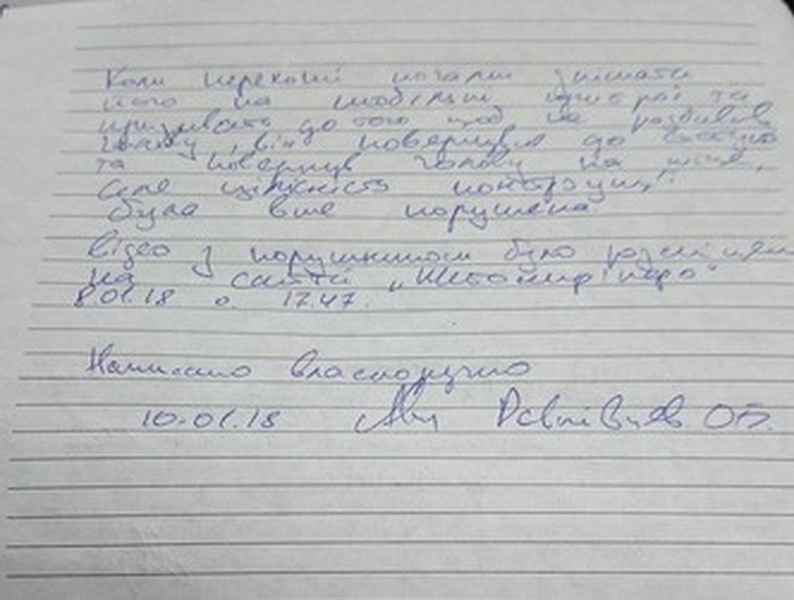 Коли перехожі почали знімати
його на мобільні пристрої та
призивать до того щоб не розбивав
голову, він повернувся до
та повернув голову на місце,
але цілісність конструкції
була вже порушена.
Відео з порушником було розміщен
на сайті „Житомирінфо"
8.01.18 о 17.47.
Написано власноручно
10.01.18